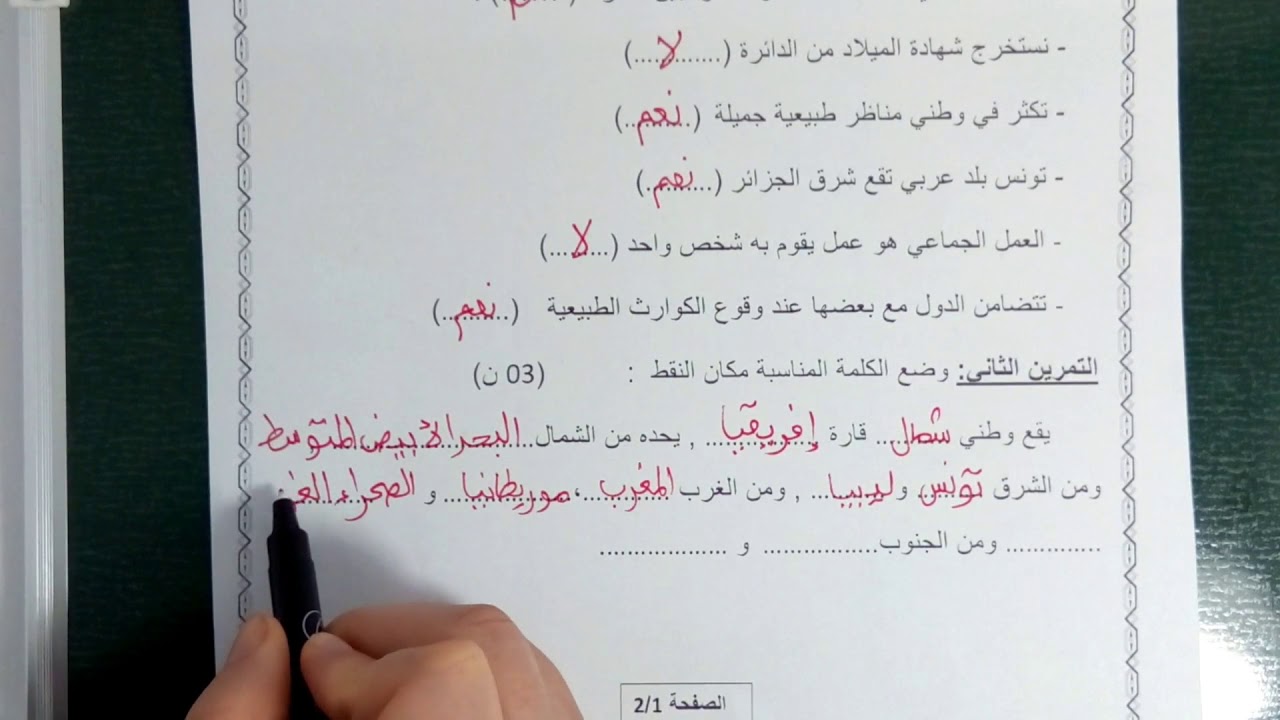 - نستخرج شهادة الميلاد من الدائرة (....لا.......)
- تكثر في وطني مناظر طبيعية جميلة (.نعم..)
- تونس بلد عربي تقع شرق الجزائر (...نعم.)
- العمل الجماعي هو عمل يقوم به شخص واحد (...لا...)
- تتضامن الدول مع بعضها عند وقوع الكوارث الطبيعية (..نعم..)
التمرين الثاني: وضع الكلمة المناسبة مكان النقط : (03 ن)
يقع وطني شمال.. قارة إفريقيا.. , يحده من الشمال..البحر الأبيض المتوسط
ومن الشرق تونس وليبيا... , ومن الغرب المغرب...، موريطانيا... و الصحراء الغر
............. ومن الجنوب................ و ..................
الصفحة 2/1